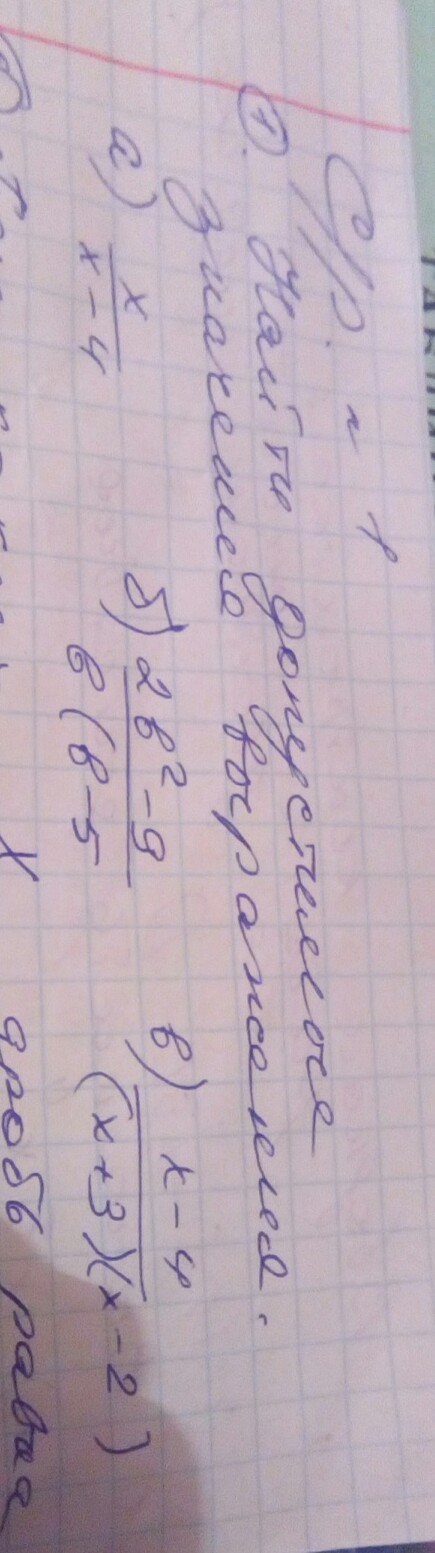 С/р. ~ 1
①. Найти допустимые
значения выражения.
а) x/(x-4) б) (2b²-9)/(b(b-5) в) (x-4)/((x+3)(x-2))
x дробь равна